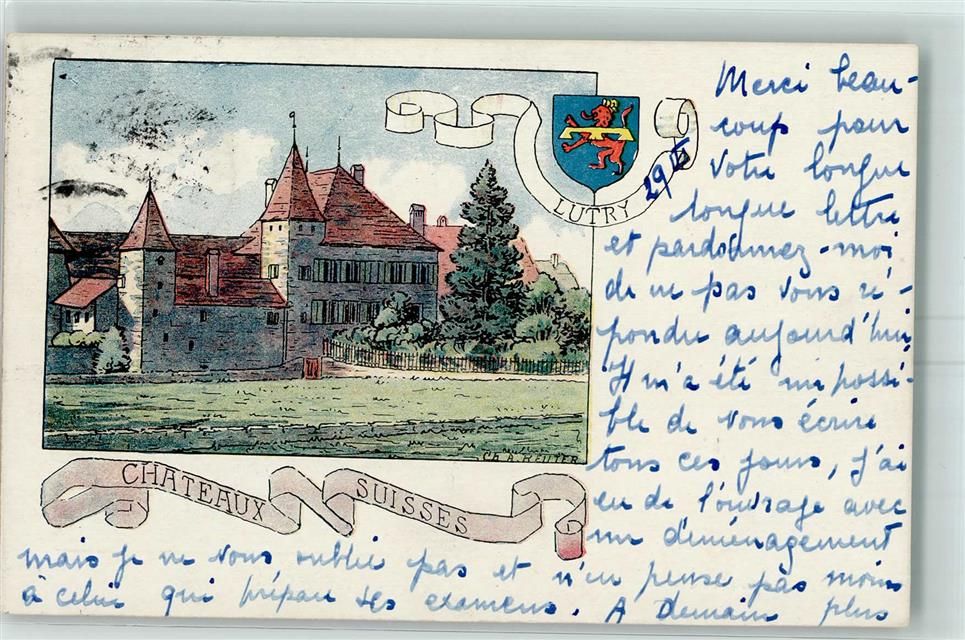 Merci beau-
coup pour
Votre longue
longue lettre
et pardonnez-moi
de ne pas vous ré-
pondre aujourd'hui
Il m'a été impossi-
ble de vous écrire
tous ces jours, j'ai
eu de l'ouvrage avec
un déménagement
mais je ne vous oublie pas et n'en pense pas moins
à celui qui prépare ses examens. A Demain plus
LUTRY
CH. D. REUTER
CHATEAUX SUISSES